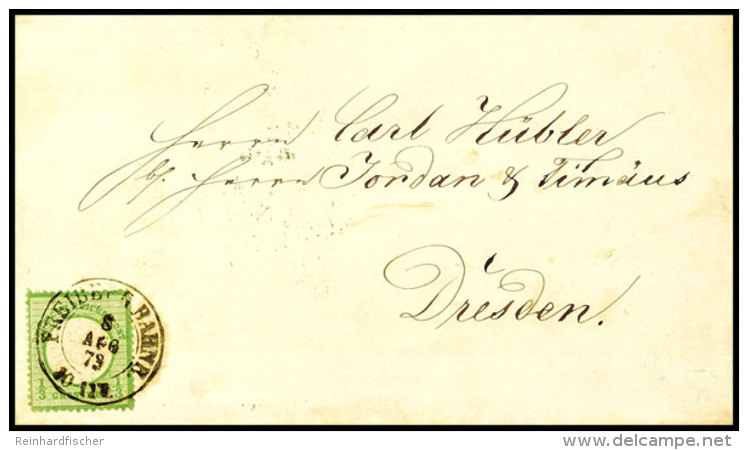 Herrn Carl Hübler
b/. Herrn Jordan & Timäus
Dresden.
FREIBERG BAHNH.
8
AUG
72
1/3 1/3
Reinhardfischer
delcampe.net